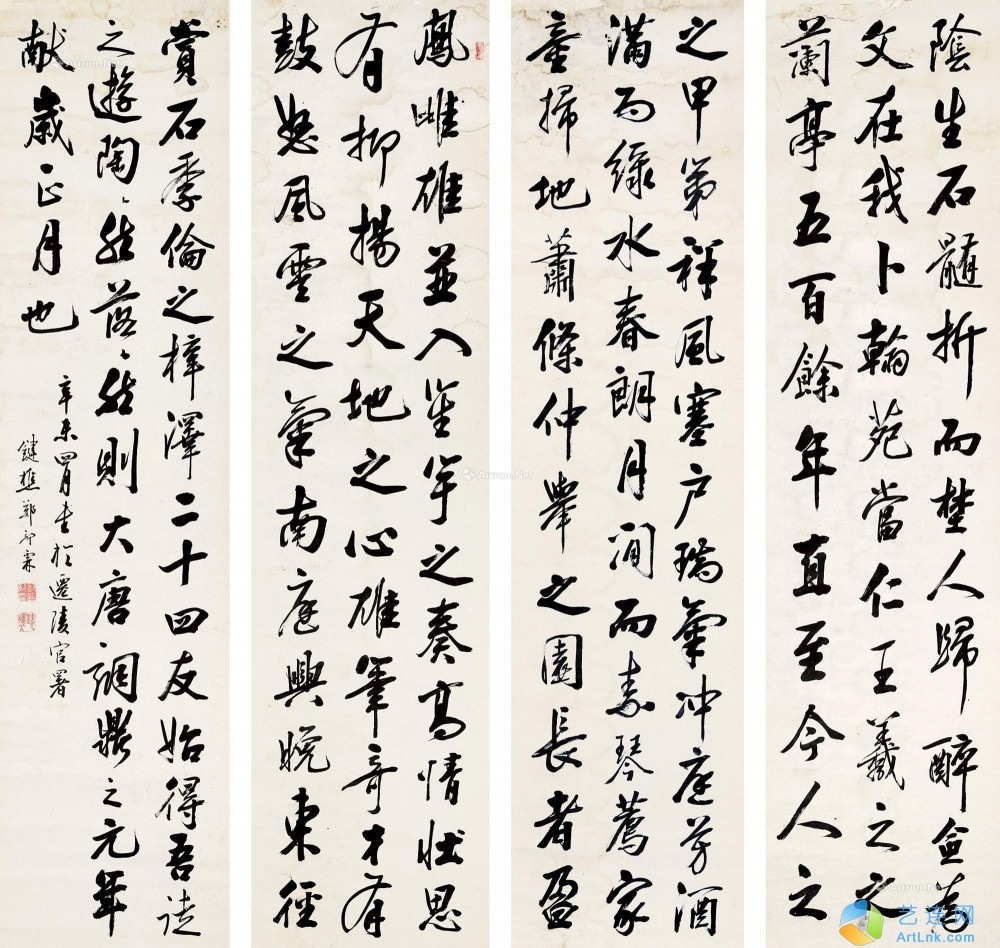 陰生石髓折而埜人歸醉
文在我卜翰苑當仁王羲之之
蘭亭五百餘年直至今人之
之甲第祥風塞戶瑞氣沖庭芳酒
滿而綠水春朗月閒而素琴薦家
童掃地蕭條仲舉之園長者盈
鳳雌雄並入笙竽之奏高情壯思
有抑揚天地之心雄筆奇才有
鼓怒風雲之氣南庭興晚東徑
賞石季倫之梓澤二十四友始得吾徒
之遊陶〻然落〻然則大唐調鼎之元年
献歲正月也
辛未四月書於遷陵官署
鍵樵鄭霖
Artron.Net
艺连网
ArtLnk.com